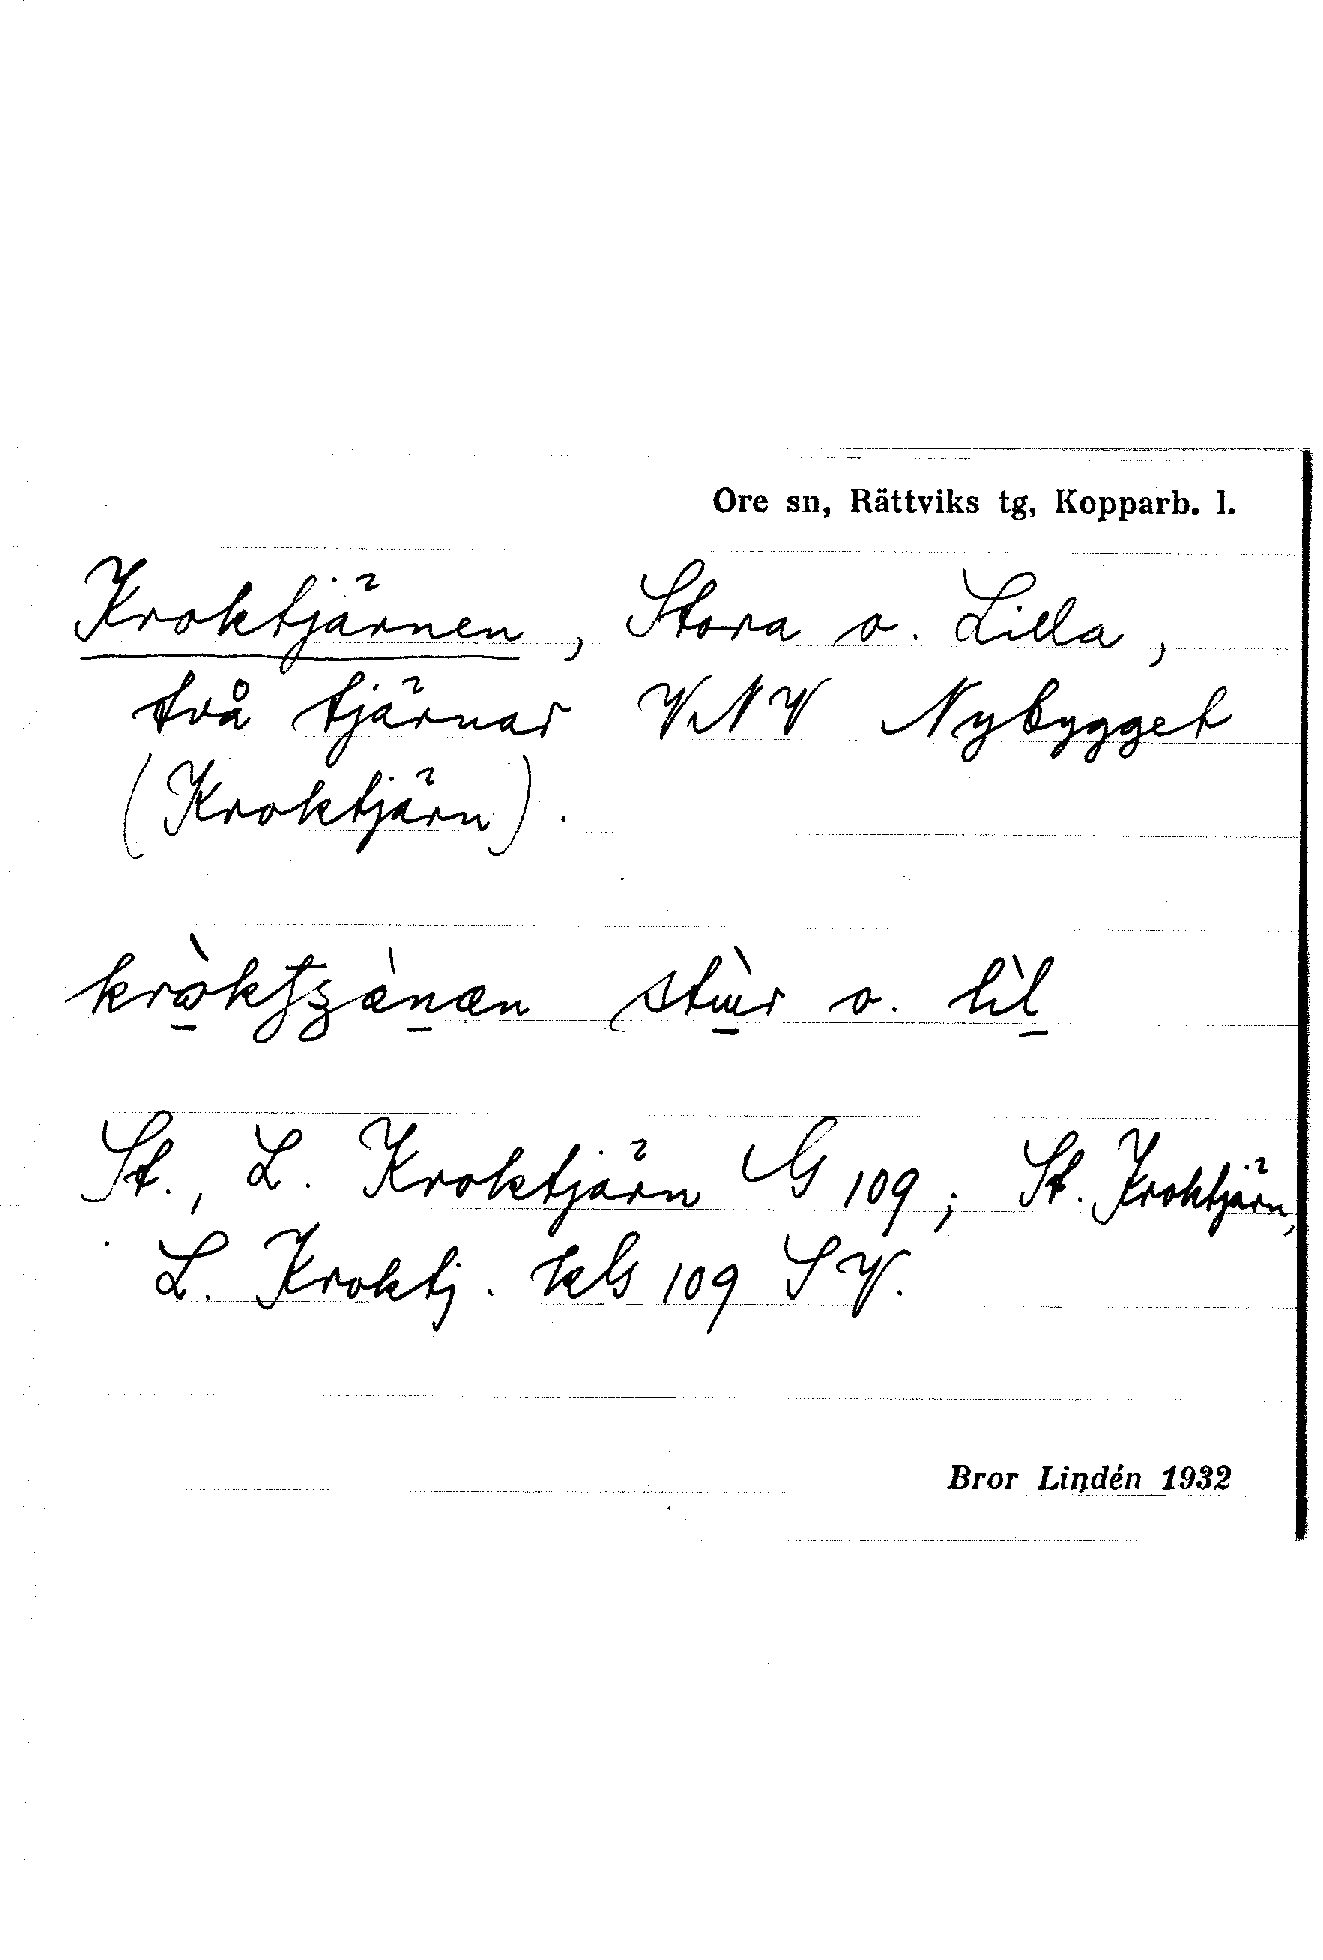 Ore sn, Rättviks tg, Kopparb. l.
Kroktjärnen, Stora o. Lilla,
två tjärnar VNV Nybygget
(Kroktjärn).
o. lìl
St., L. Kroktjärn G 109; St. Kroktjärn,
L. Kroktj. kG 109 SV.
Bror Lindén 1932